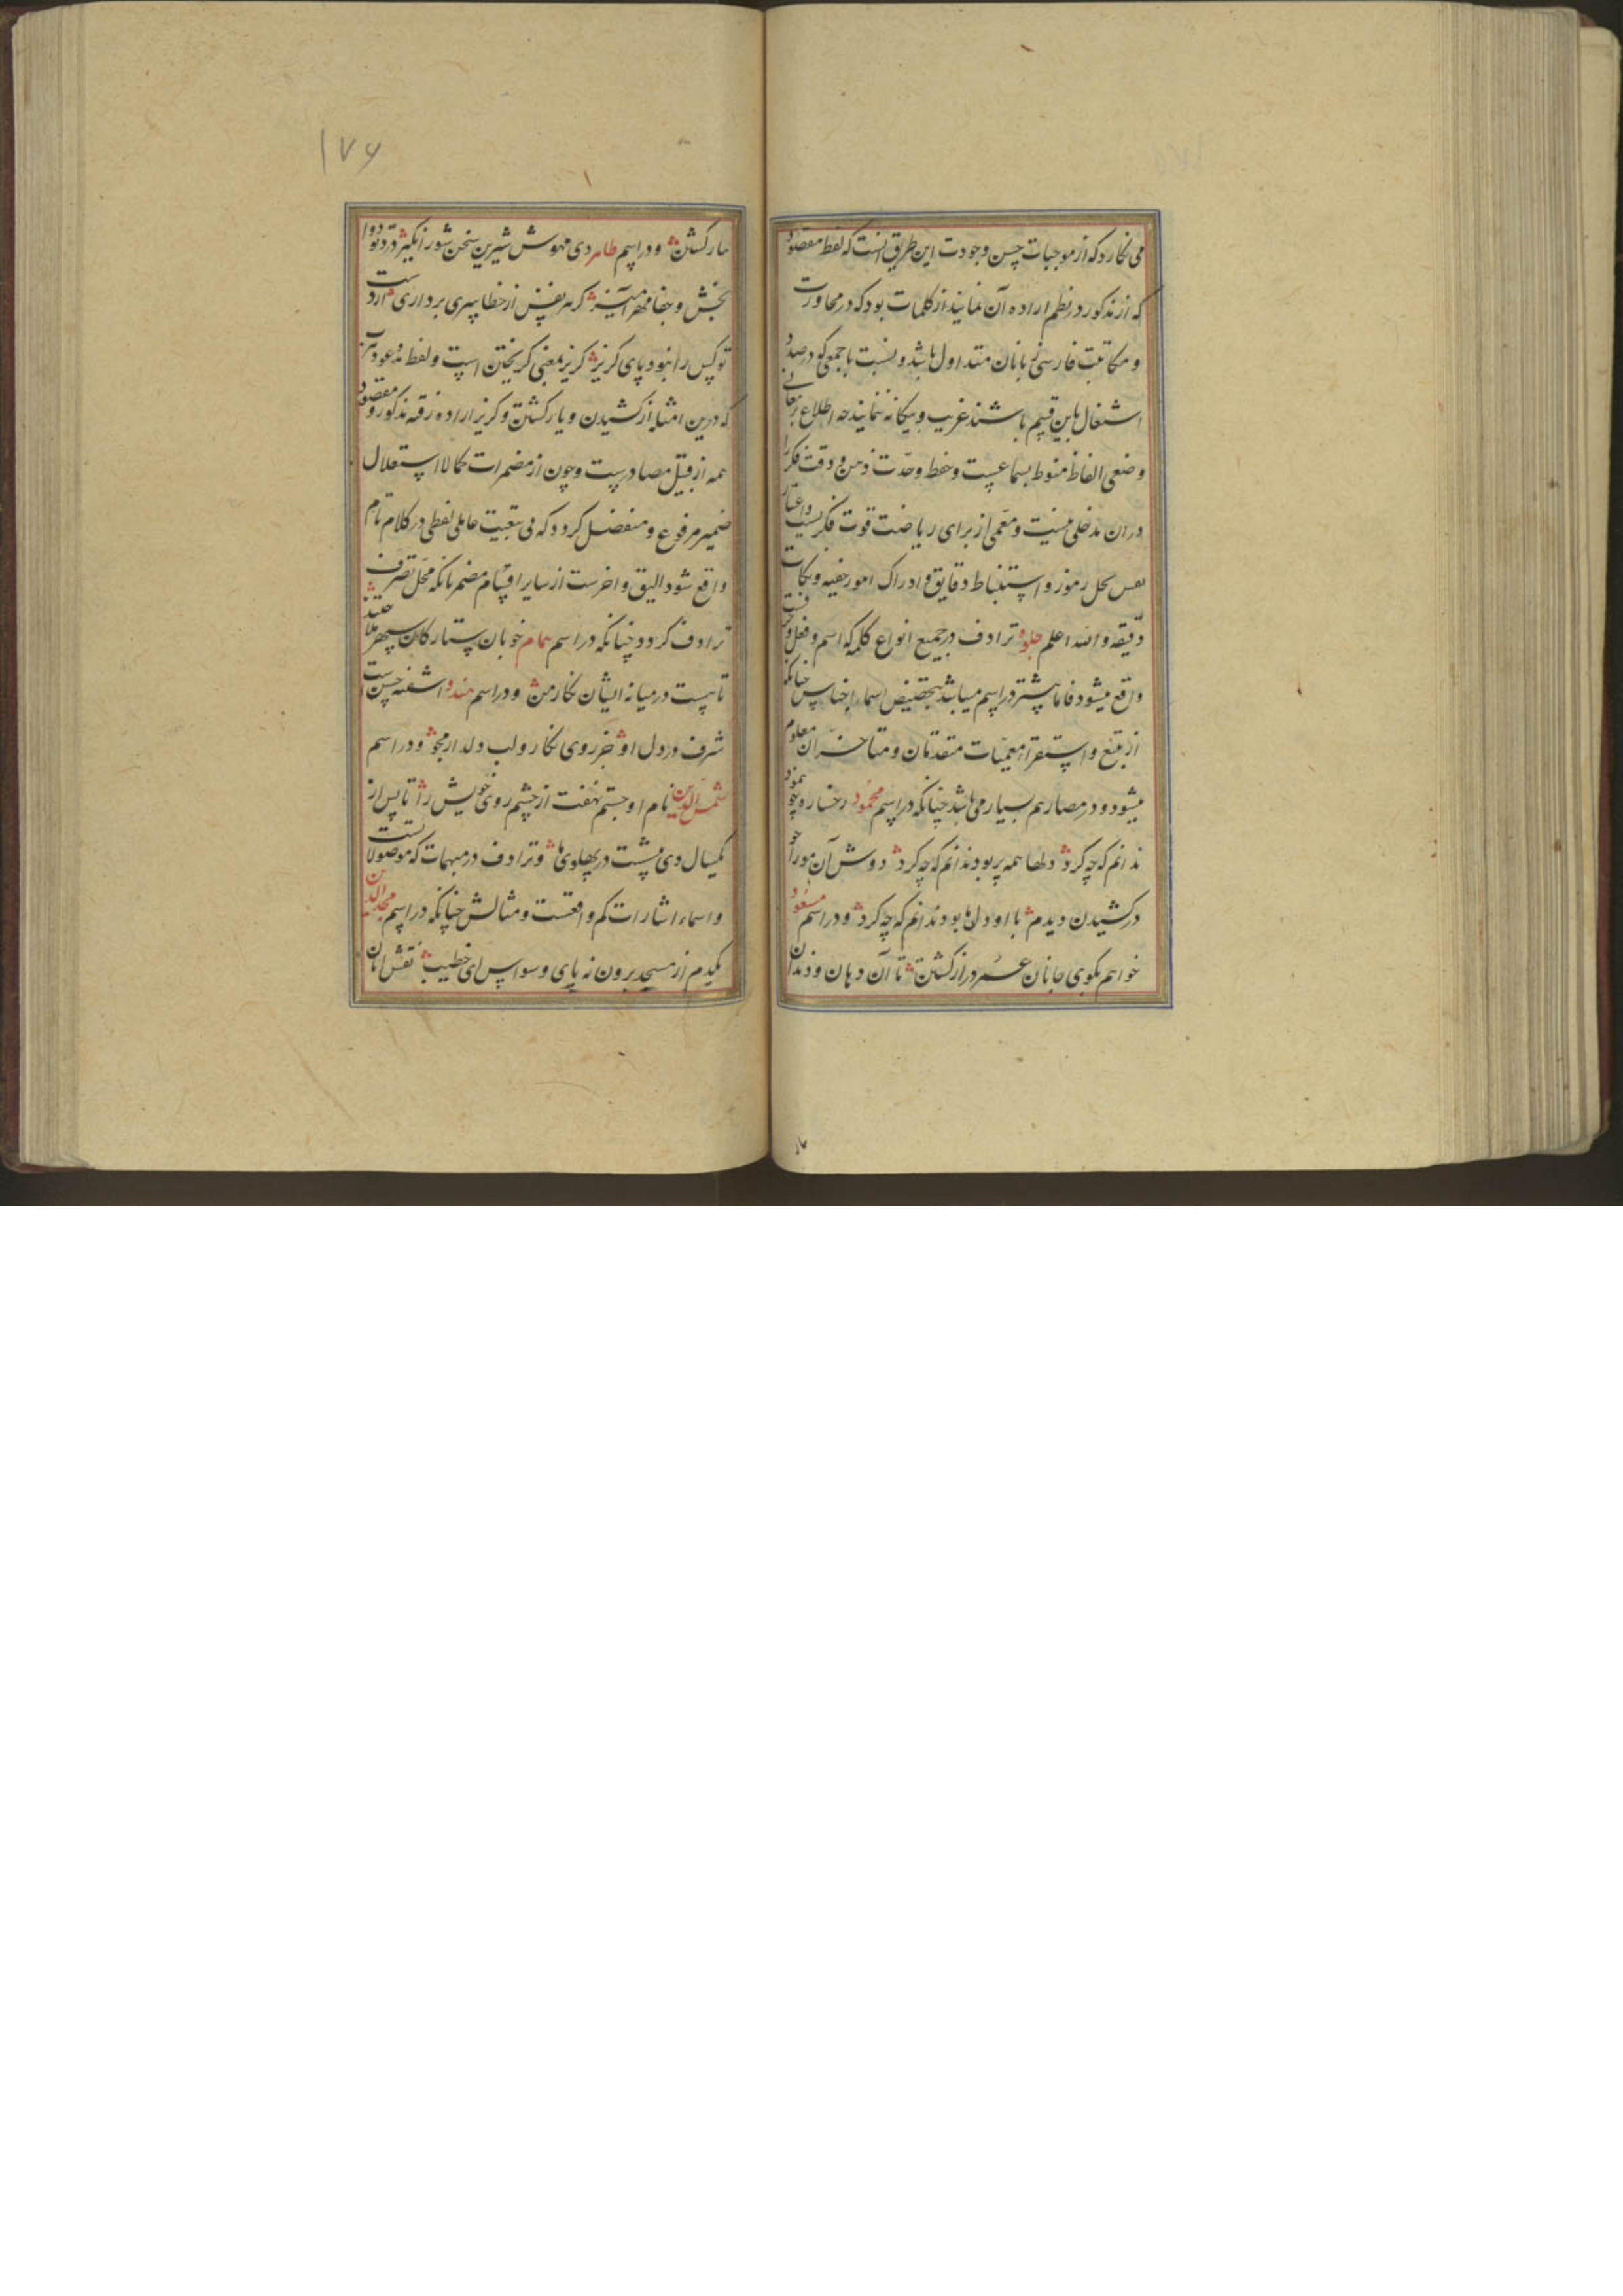 می نکارد که از موجبات حسن وجودت این طریق آنست که لفظ مقصود
که از مذکور در نظم اراده آن نمایند از کلمات بود که در محاورت
و مکاتبت فارسی زبانان متداول باشد و نسبت با جمعی که در صدد
اشتغال باین قسم باشند غریب و بیکانه ننماید چه اطلاع بر معانی
وضعی الفاظ منوط بسماعیست و حفظ وحدّت ذهن و دقت فکر را
در ان مدخلی نیست و معمی از برای ریاضت قوت فکریست و اعتیاد
نفس بحل رموز و استنباط دقایق و ادراک امور خفیه و نکات
دقیقه والله اعلم جلوه ترادف در جمیع انواع کلمه که اسم و فعل و حرفست
واقع میشود فاما بیشتر در اسم میباشد بتخصیص اسماء اجناس چنانکه
از تتبع و استقراء معمیات متقدمان و متاخران معلوم
میشود و در مصادر هم بسیار می باشد چنانکه در اسم محمود رخساره چو بنمود
ندانم که چه کرد دلها همه بربود ندانم که چه کرد دوش آن مو را چو
در کشیدن دیدم با او دل ما بود ندانم که چه کرد و در اسم مسعود
خواهم بکوی جانان عمر دراز کشتن تا آن دهان و دندان
یار کشتن و در اسم طاهر دی مهوش شیرین سخن شور انکیز درد تو دوا
بخش و جفا مهر آمیز کر هر نفس از خطا سری برداری ار دست
تو کس را نبود پای کریز کریز بمعنی کریختن است ولفظ مدعو
که درین امثله از کشیدن و یار کشتن و کریز اراده رفته مذکور و مقصود
همه از قبیل مصادرست و چون از مضمرات کمالا استقلال
ضمیر مرفوع و منفصل کردد که بی تبعیت عامل لفظی در کلام تام
واقع شود الیق و احرست از سایر اقسام مضمر بانکه محل تصرف
ترادف کردد چنانکه در اسم همام خوبان ستارکان سپهر
تا هست در میانه ایشان نکار من و در اسم هندو آشفته حسن است
شرف در دل او جز روی نکار و لب دلدار مجو و در اسم
شمس الدین نام او جستم نهفت از چشم روی خویش را تا پس از
یکسال دی بنشست در پهلوی ما و ترادف در مبهمات که موصولاتست
و اسماء اشارات کم واقعست و مثالش چنانکه در اسم مجد الدین
یکدم از مسجد برون نه پای وسواس ای خطیب نقش
۱۷۶